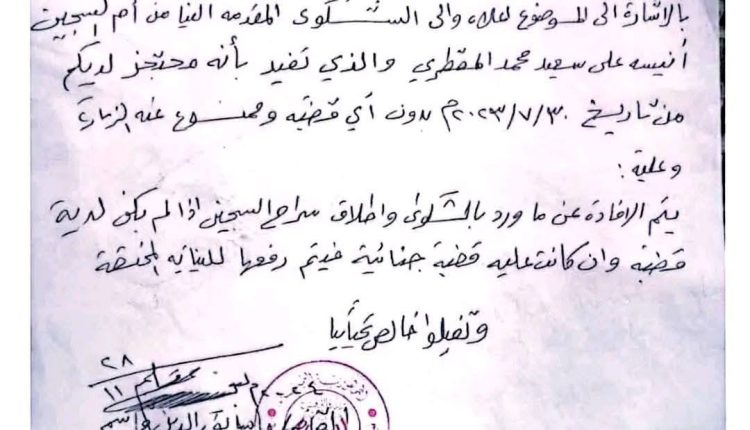 بالاشارة الى الموضوع اعلاه والى الشكوى المقدمه الينا من أم السجين
أنيسه على سعيد محمد المقطري والذي تفيد بأنه محتجز لديكم
من تاريخ ٢٠٢٣/٧/٣٠م بدون أي قضية وممنوع عنه الزيارة
وعلية :
يتم الافادة عن ما ورد بالشكوى واطلاق سراح السجين اذا لم يكن لدية
قضية وان كانت عليه قضية جنائية فيتم رفعها للنيابه المختصة
وتقبلوا خالص تحياتنا
٢٨
١١